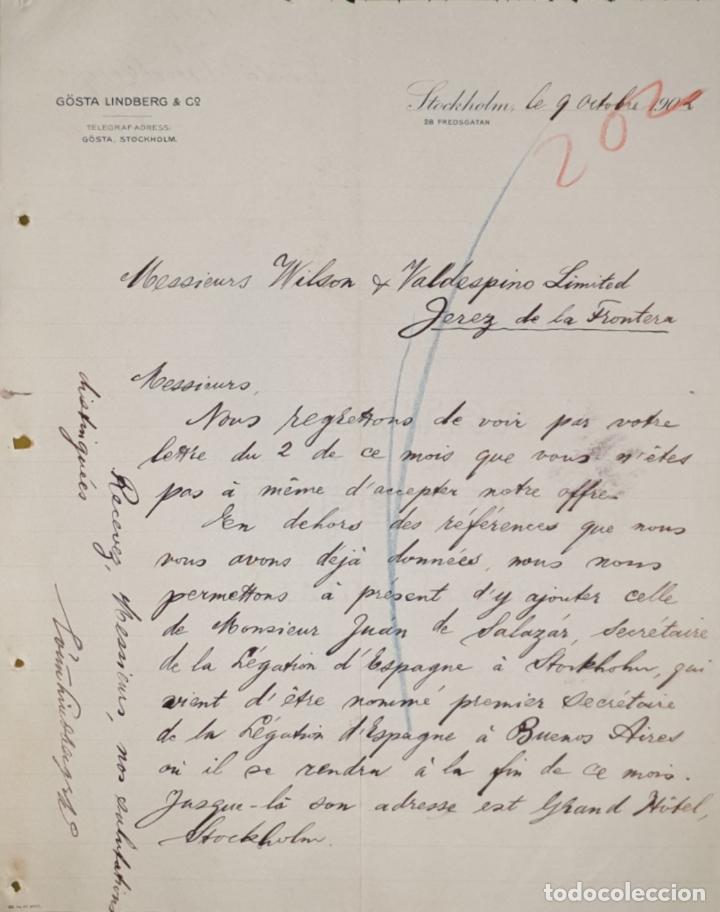 GÖSTA LINDBERG & Cº
TELEGRAF-ADRESS:
GÖSTA, STOCKHOLM.
Stockholm, le 9 Octobre 1902
28 FREDSGATAN
202
Messieurs Wilson & Valdespino Limited
Jerez de la Frontera
Messieurs,
Nous regrettons de voir par votre
lettre du 2 de ce mois que vous n'êtes
pas à même d'accepter notre offre.
En dehors des références que nous
vous avons déjà données, nous nous
permettons à présent d'y ajouter celle
de Monsieur Juán de Salazár, Secrétaire
de la Légation d'Espagne à Stockholm, qui
vient d'être nommé premier Secrétaire
de la Légation d'Espagne à Buenos Aires
où il se rendra à la fin de ce mois.
Jusque-là son adresse est Grand Hôtel,
Stockholm.
Recevez, Messieurs, nos salutations
distinguées
todocoleccion.net